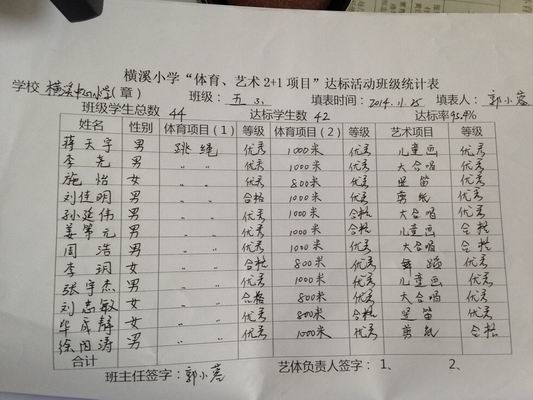 横溪小学“体育、艺术2+1项目”达标活动班级统计表
学校 横溪中心小学(章) 班级: 五 3. 填表时间: 2014.11.25 填表人: 郭小蓉
班级学生总数 44 达标学生数 42 达标率95.4%
姓名 性别 体育项目(1) 等级 体育项目(2) 等级 艺术项目 等级
蒋天宇 男 跳绳 优秀 1000米 优秀 儿童画 优秀
李尧 男 〃 〃 优秀 1000米 优秀 大合唱 优秀
施怡 女 〃 〃 优秀 800米 优秀 竖笛 优秀
刘佳明 男 〃 〃 合格 1000米 优秀 剪纸 优秀
孙延伟 男 〃 〃 优秀 1000米 合格 大合唱 优秀
姜第元 男 〃 〃 优秀 1000米 优秀 儿童画 合格
周浩 男 〃 〃 优秀 1000米 优秀 大合唱 合格
李玥 女 〃 〃 合格 800米 合格 舞蹈 优秀
张宇杰 男 〃 〃 优秀 1000米 优秀 儿童画 优秀
刘志敏 女 〃 〃 合格 800米 优秀 大合唱 优秀
华成静 女 〃 〃 优秀 800米 合格 竖笛 优秀
徐阳涛 男 〃 〃 优秀 1000米 优秀 剪纸 合格
合计
班主任签字: 郭小蓉 艺体负责人签字: 1、 2、